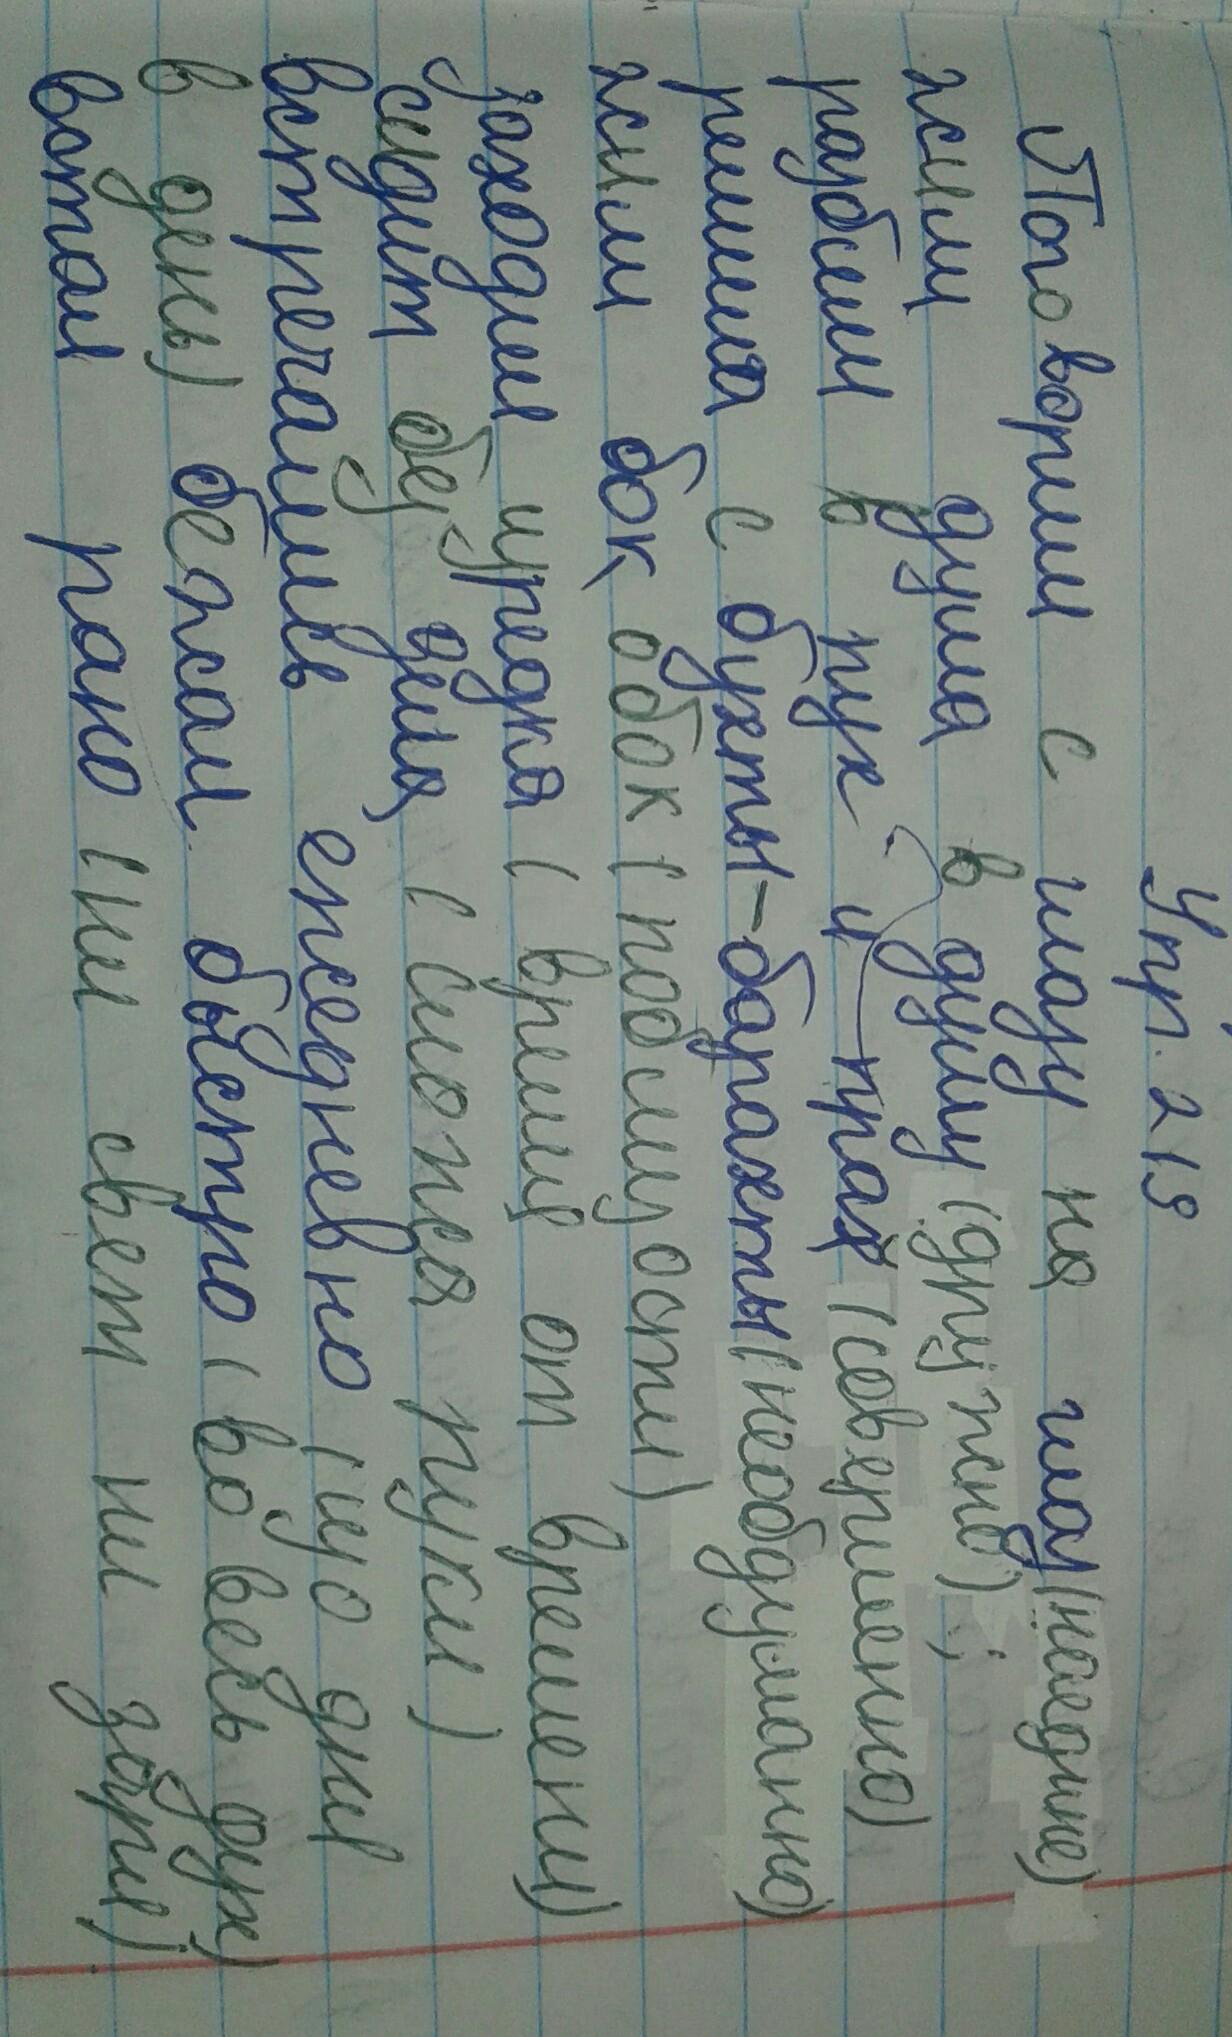 Упр. 219
Поговорили с глазу на глаз (наедине)
жили душа в душу (дружно);
разбили в пух и прах (совершенно)
решила с бухты-барахты (необдуманно)
жили бок о бок (поблизости)
заходил изредка (время от времени)
сидит без дела (сложа руки)
встречались ежедневно (изо дня
в день) бежал быстро (во весь дух)
встал рано (ни свет ни заря)